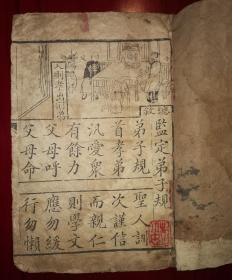 監定弟子規
弟子規 聖人訓
首孝弟 次謹信
汎愛眾 而親仁
有餘力 則學文
父母呼 應勿緩
父母命 行勿懶